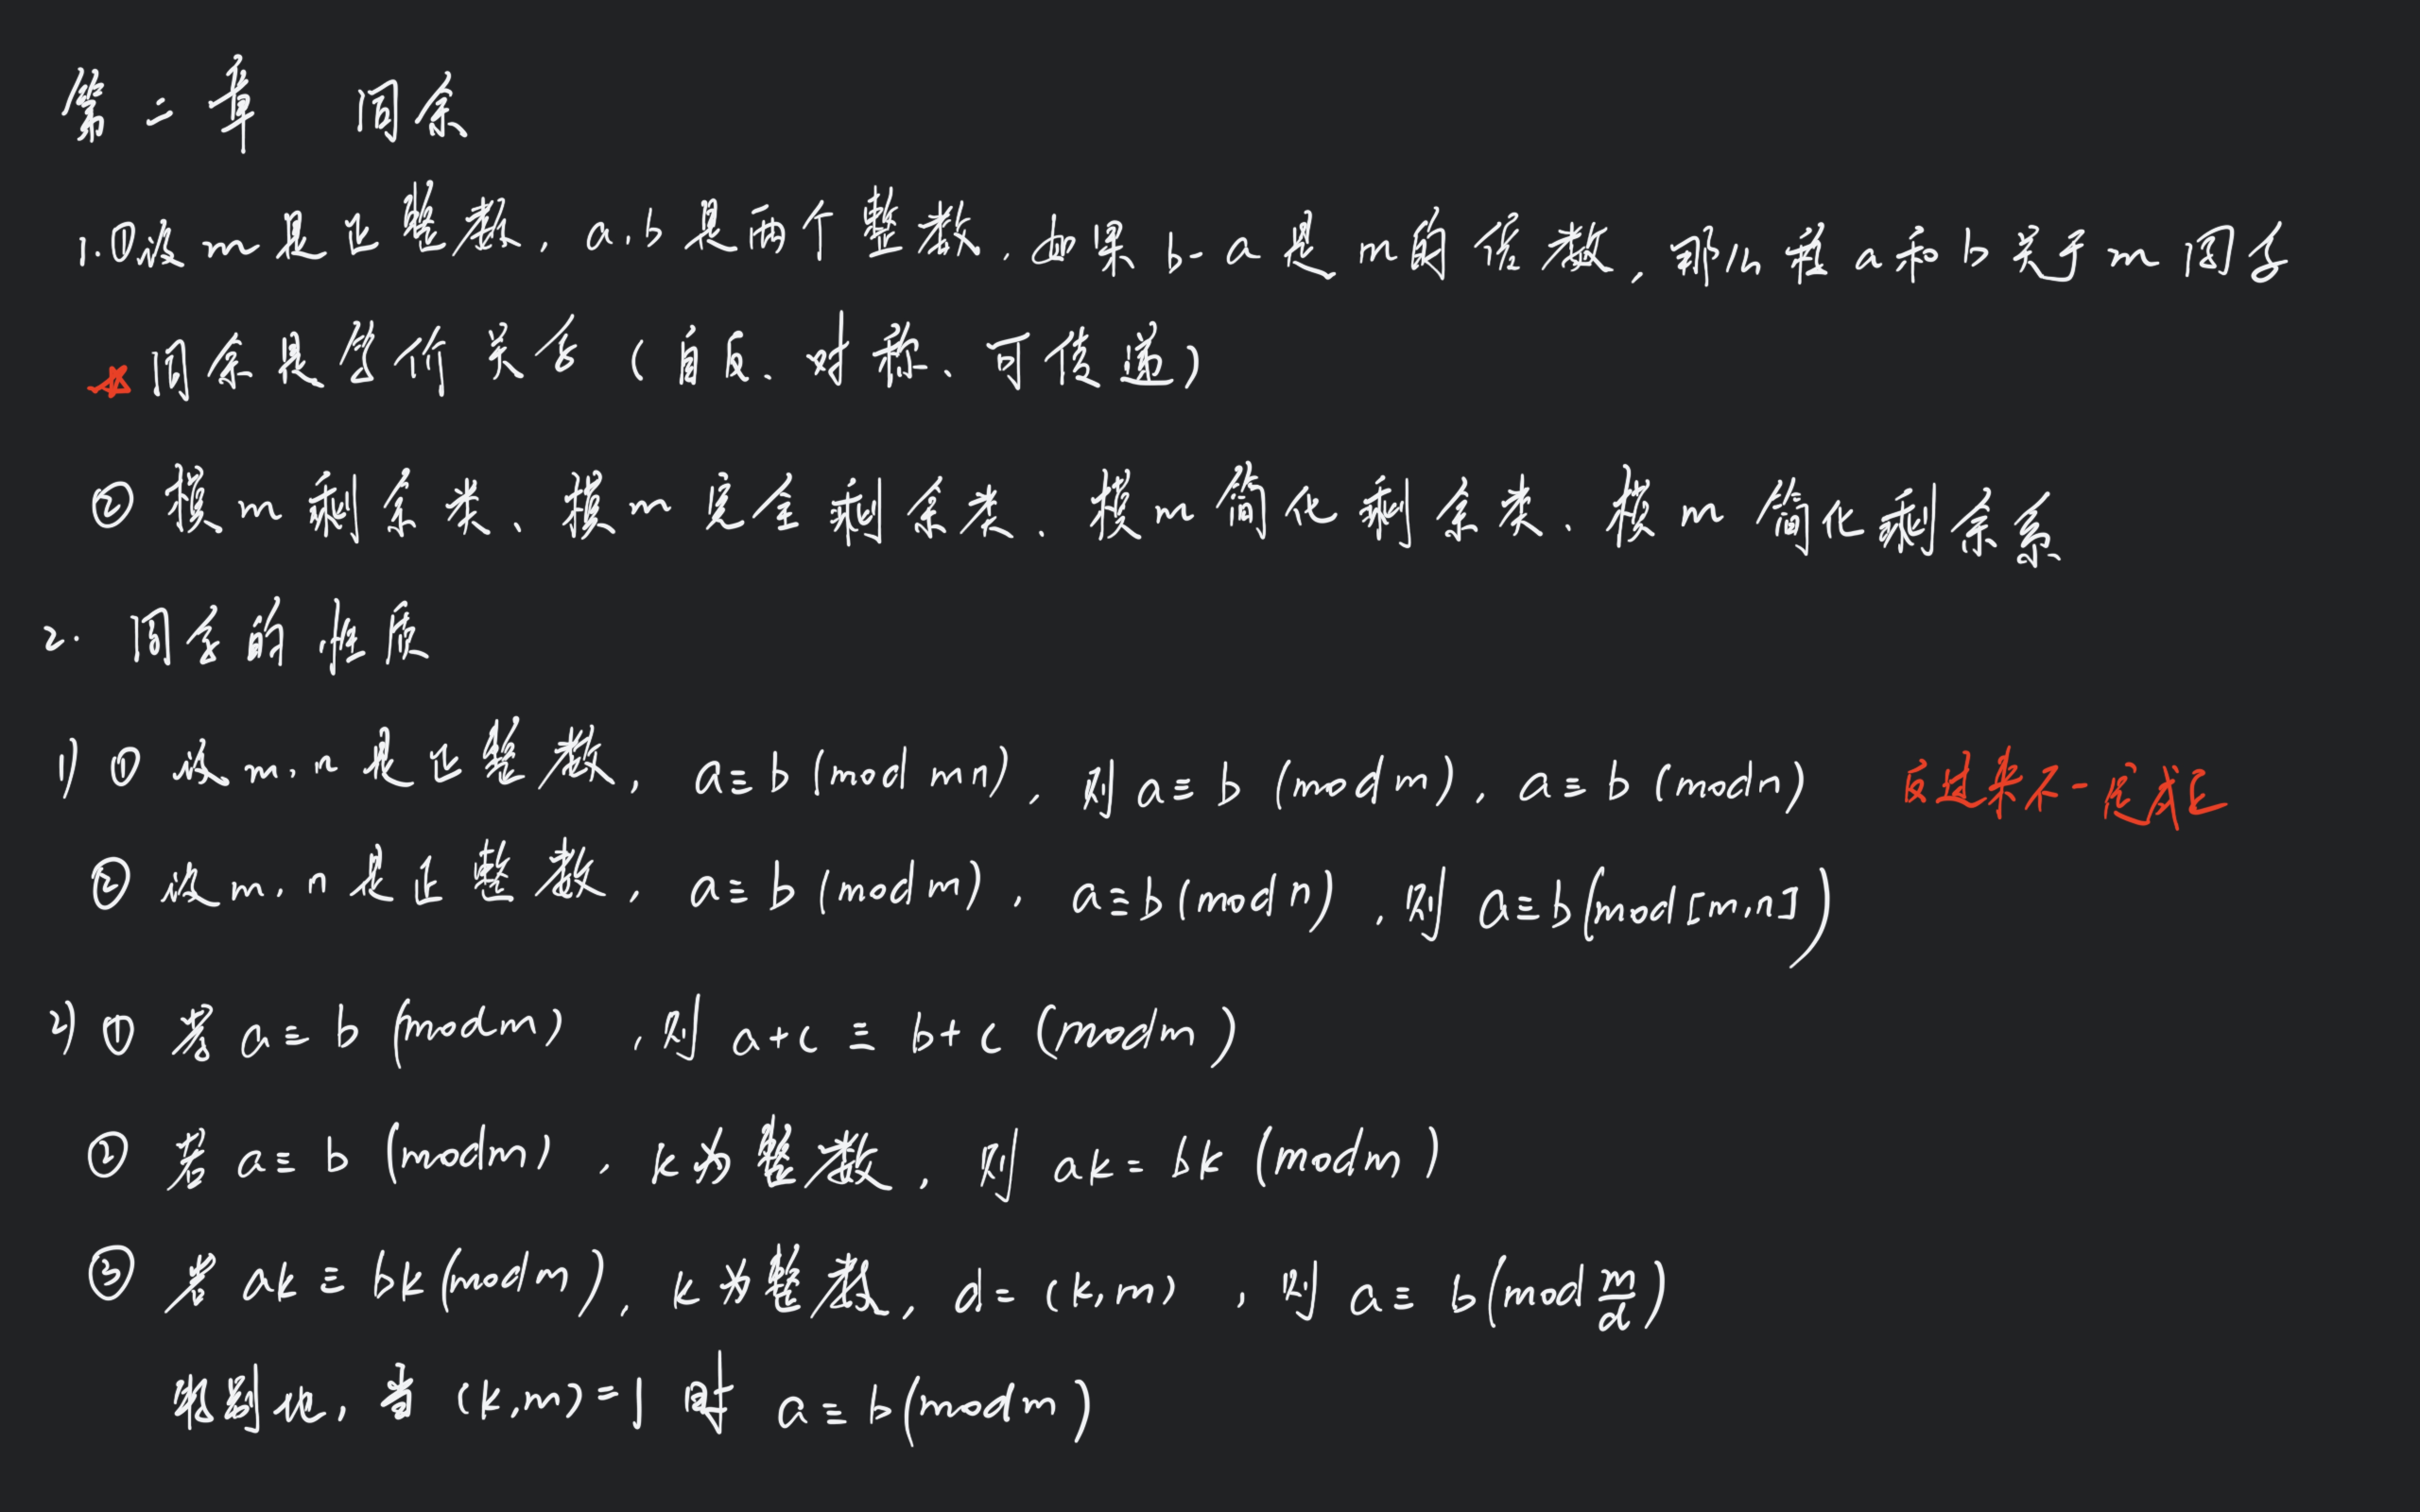 第二章 同余
1.①设m是正整数，a,b是两个整数，如果b-a是m的倍数，那么称a和b关于m同余
☆同余是等价关系（自反、对称、可传递）
② 模m剩余类、模m完全剩余类、模m简化剩余类、模m简化剩余系
2. 同余的性质
1) ① 设m,n是正整数，a≡b (mod mn)，则a≡b (mod m)，a≡b (mod n) 反过来不一定成立
② 设m,n是正整数，a≡b (mod m)，a≡b (mod n)，则 a≡b (mod [m,n])
2) ① 若a≡b (mod m)，则 a+c≡b+c (mod m)
② 若a≡b (mod m)，k为整数，则 ak=bk (mod m)
③ 若ak≡bk (mod m)，k为整数，d=(k,m)，则 a≡b (mod m/d)
特别地，当(k,m)=1时 a≡b (mod m)